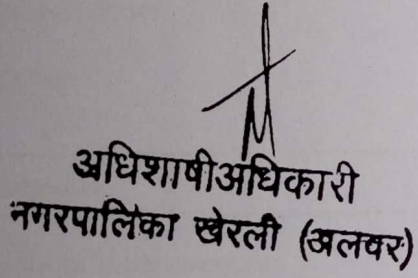 अधिशाषीअधिकारी
नगरपालिका खेरली (अलवर)